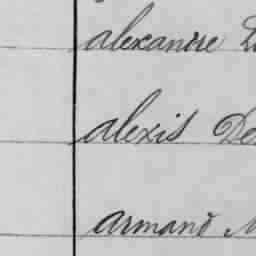 alexandre
alexis
armand